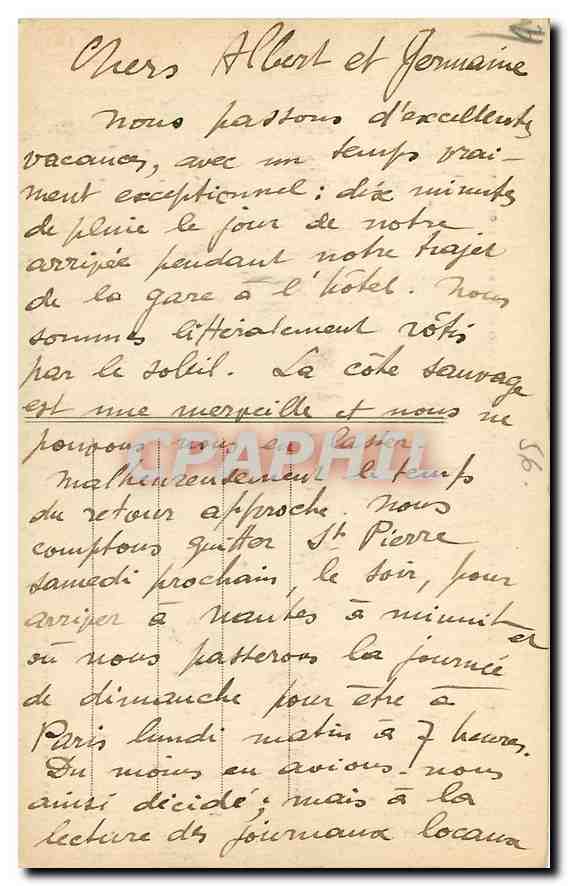 Chers Albert et Germaine
Nous passons d'excellentes
vacances, avec un temps vrai-
ment exceptionnel : dix minutes
de pluie le jour de notre
arrivée pendant notre trajet
de la gare à l'hôtel. Nous
sommes littéralement rôtis
par le soleil. La côte sauvage
est une merveille et nous ne
pouvons nous en lasser
Malheureusement le temps
du retour approche. Nous
comptons quitter St Pierre
samedi prochain, le soir, pour
arriver à Nantes à minuit et
où nous passerons la journée
de dimanche pour être à
Paris lundi matin à 7 heures.
Du moins en avions-nous
ainsi décidé ; mais à la
lecture des journaux locaux
56.
CPAPHIL